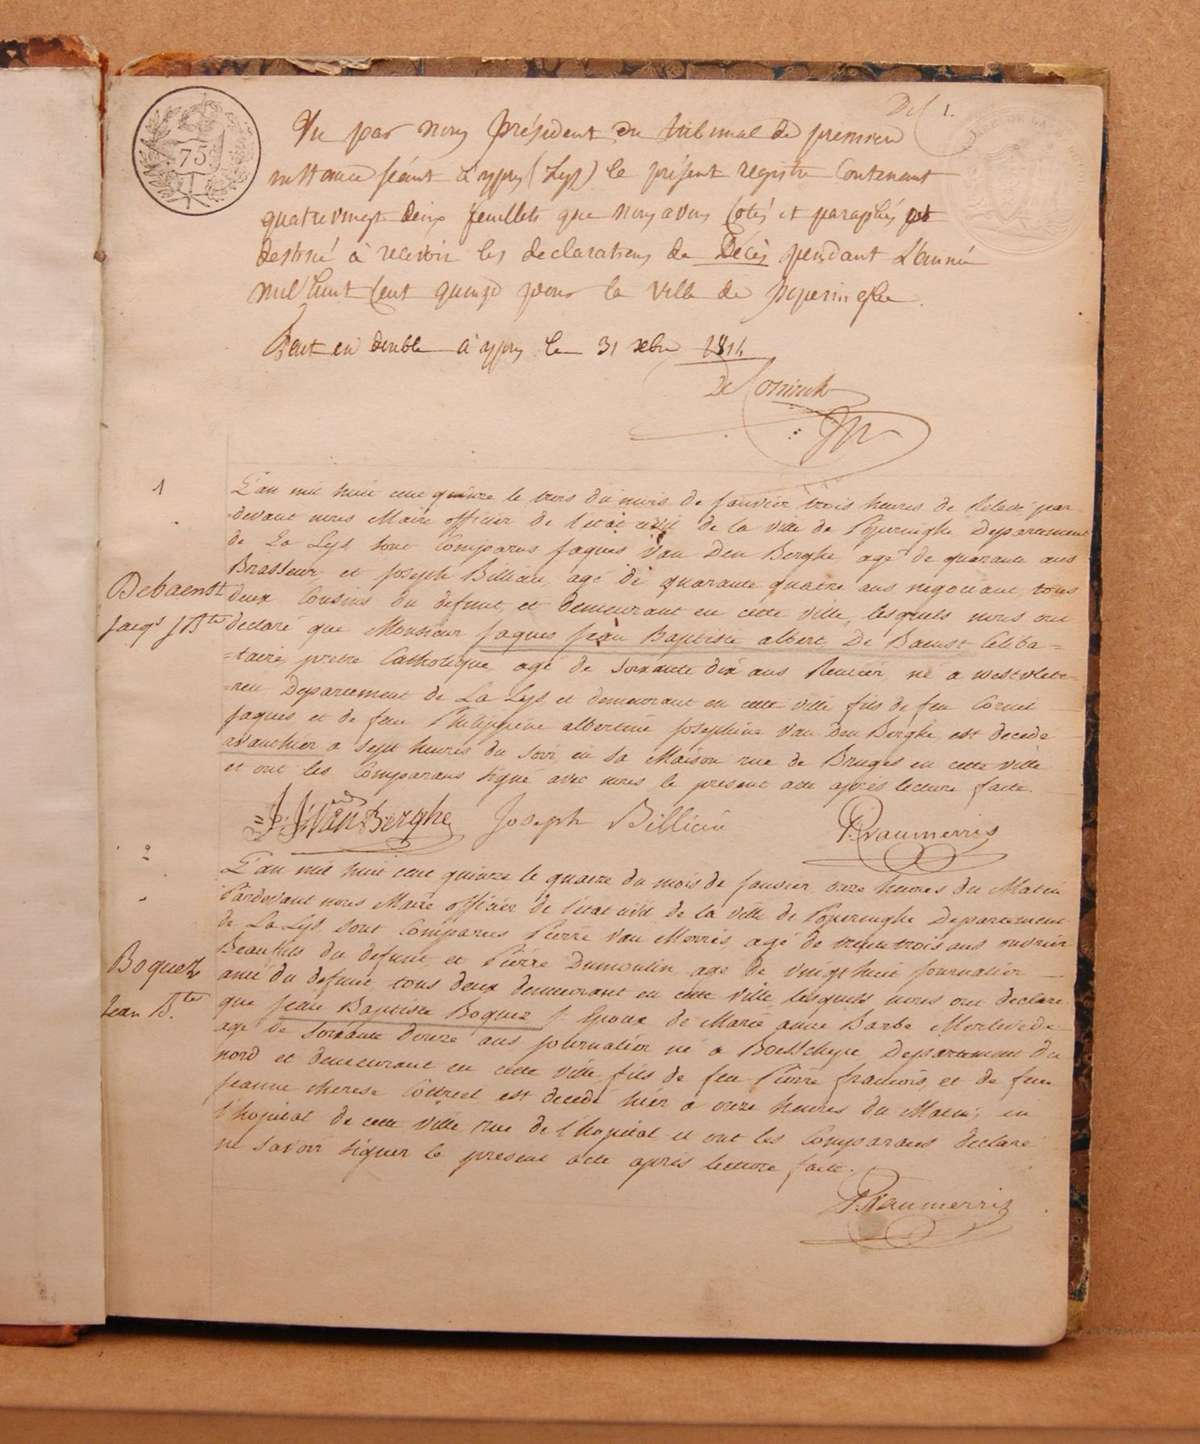 75
Def 1.
Vu par nous président du tribunal de premiere
instance séant à ypres (Lys) le présent registre contenant
quatrevingt deux feuillets que nous avons cotés et paraphés
destiné à recevoir les declarations de Décès pendant L'année
mil huit cent quinze pour la ville de poperinghe.
fait en double à ypres le 31 xbre 1814
1
L'an mil huit cent quinze le trois du mois de Janvier trois heures de Relevée par
devant nous Maire officier de l'etat civil de la ville de Poperinghe Departement
de La Lys sont Comparus Jaques Van Den Berghe agé de quarante ans
Brasseur et Joseph Billiau agé de quarante quatre ans negociant, tous
Debaenst deux Cousins du defunt, et demeurant en cette ville, lesquels nous ont
Jacqs J Bte declaré que Monsieur Jaques Jean Baptiste albert De Baenst Celiba=
=taire, pretre Catholique agé de soixante dix ans Rentier, né a westvlete=
=ren Departement de La Lys et demeurant en cette ville fils de feu Cornel
Jaques et de feue Philippine albertine Josephine Van Den Berghe, est decedé
avanthier a sept heures du soir, en sa Maison rue de Bruges en cette ville
et ont les Comparans signé avec nous le present acte après lecture faite.
J. J. Van Den Berghe Joseph Billiau P. Vanmerris
2
L'an mil huit cent quinze le quatre du mois de Janvier onze heures du Matin
Pardevant nous Maire officier de l'etat civil de la ville de Poperinghe Departement
de La Lys sont Comparus Pierre Van Merris agé de trentetrois ans ouvrier
Beaufils du defunt et Pierre Dumoulin agé de vingt huit Journalier
Boquez ami du defunt, tous deux demeurant en cette ville lesquels nous ont declaré
Jean Bte que Jean Baptiste Boquez Epoux de Marie anne Barbe Merlevede
agé de soixante douze ans Journalier né a Boeschepe Departement du
nord et demeurant en cette ville fils de feu Pierre francois, et de feue
Jeanne therese Cottreel est decedé hier a onze heures du Matin, en
l'hopital de cette ville rue de l'hopital et ont les Comparans declaré
ne savoir signer le present acte après lecture faite.
P. Vanmerris